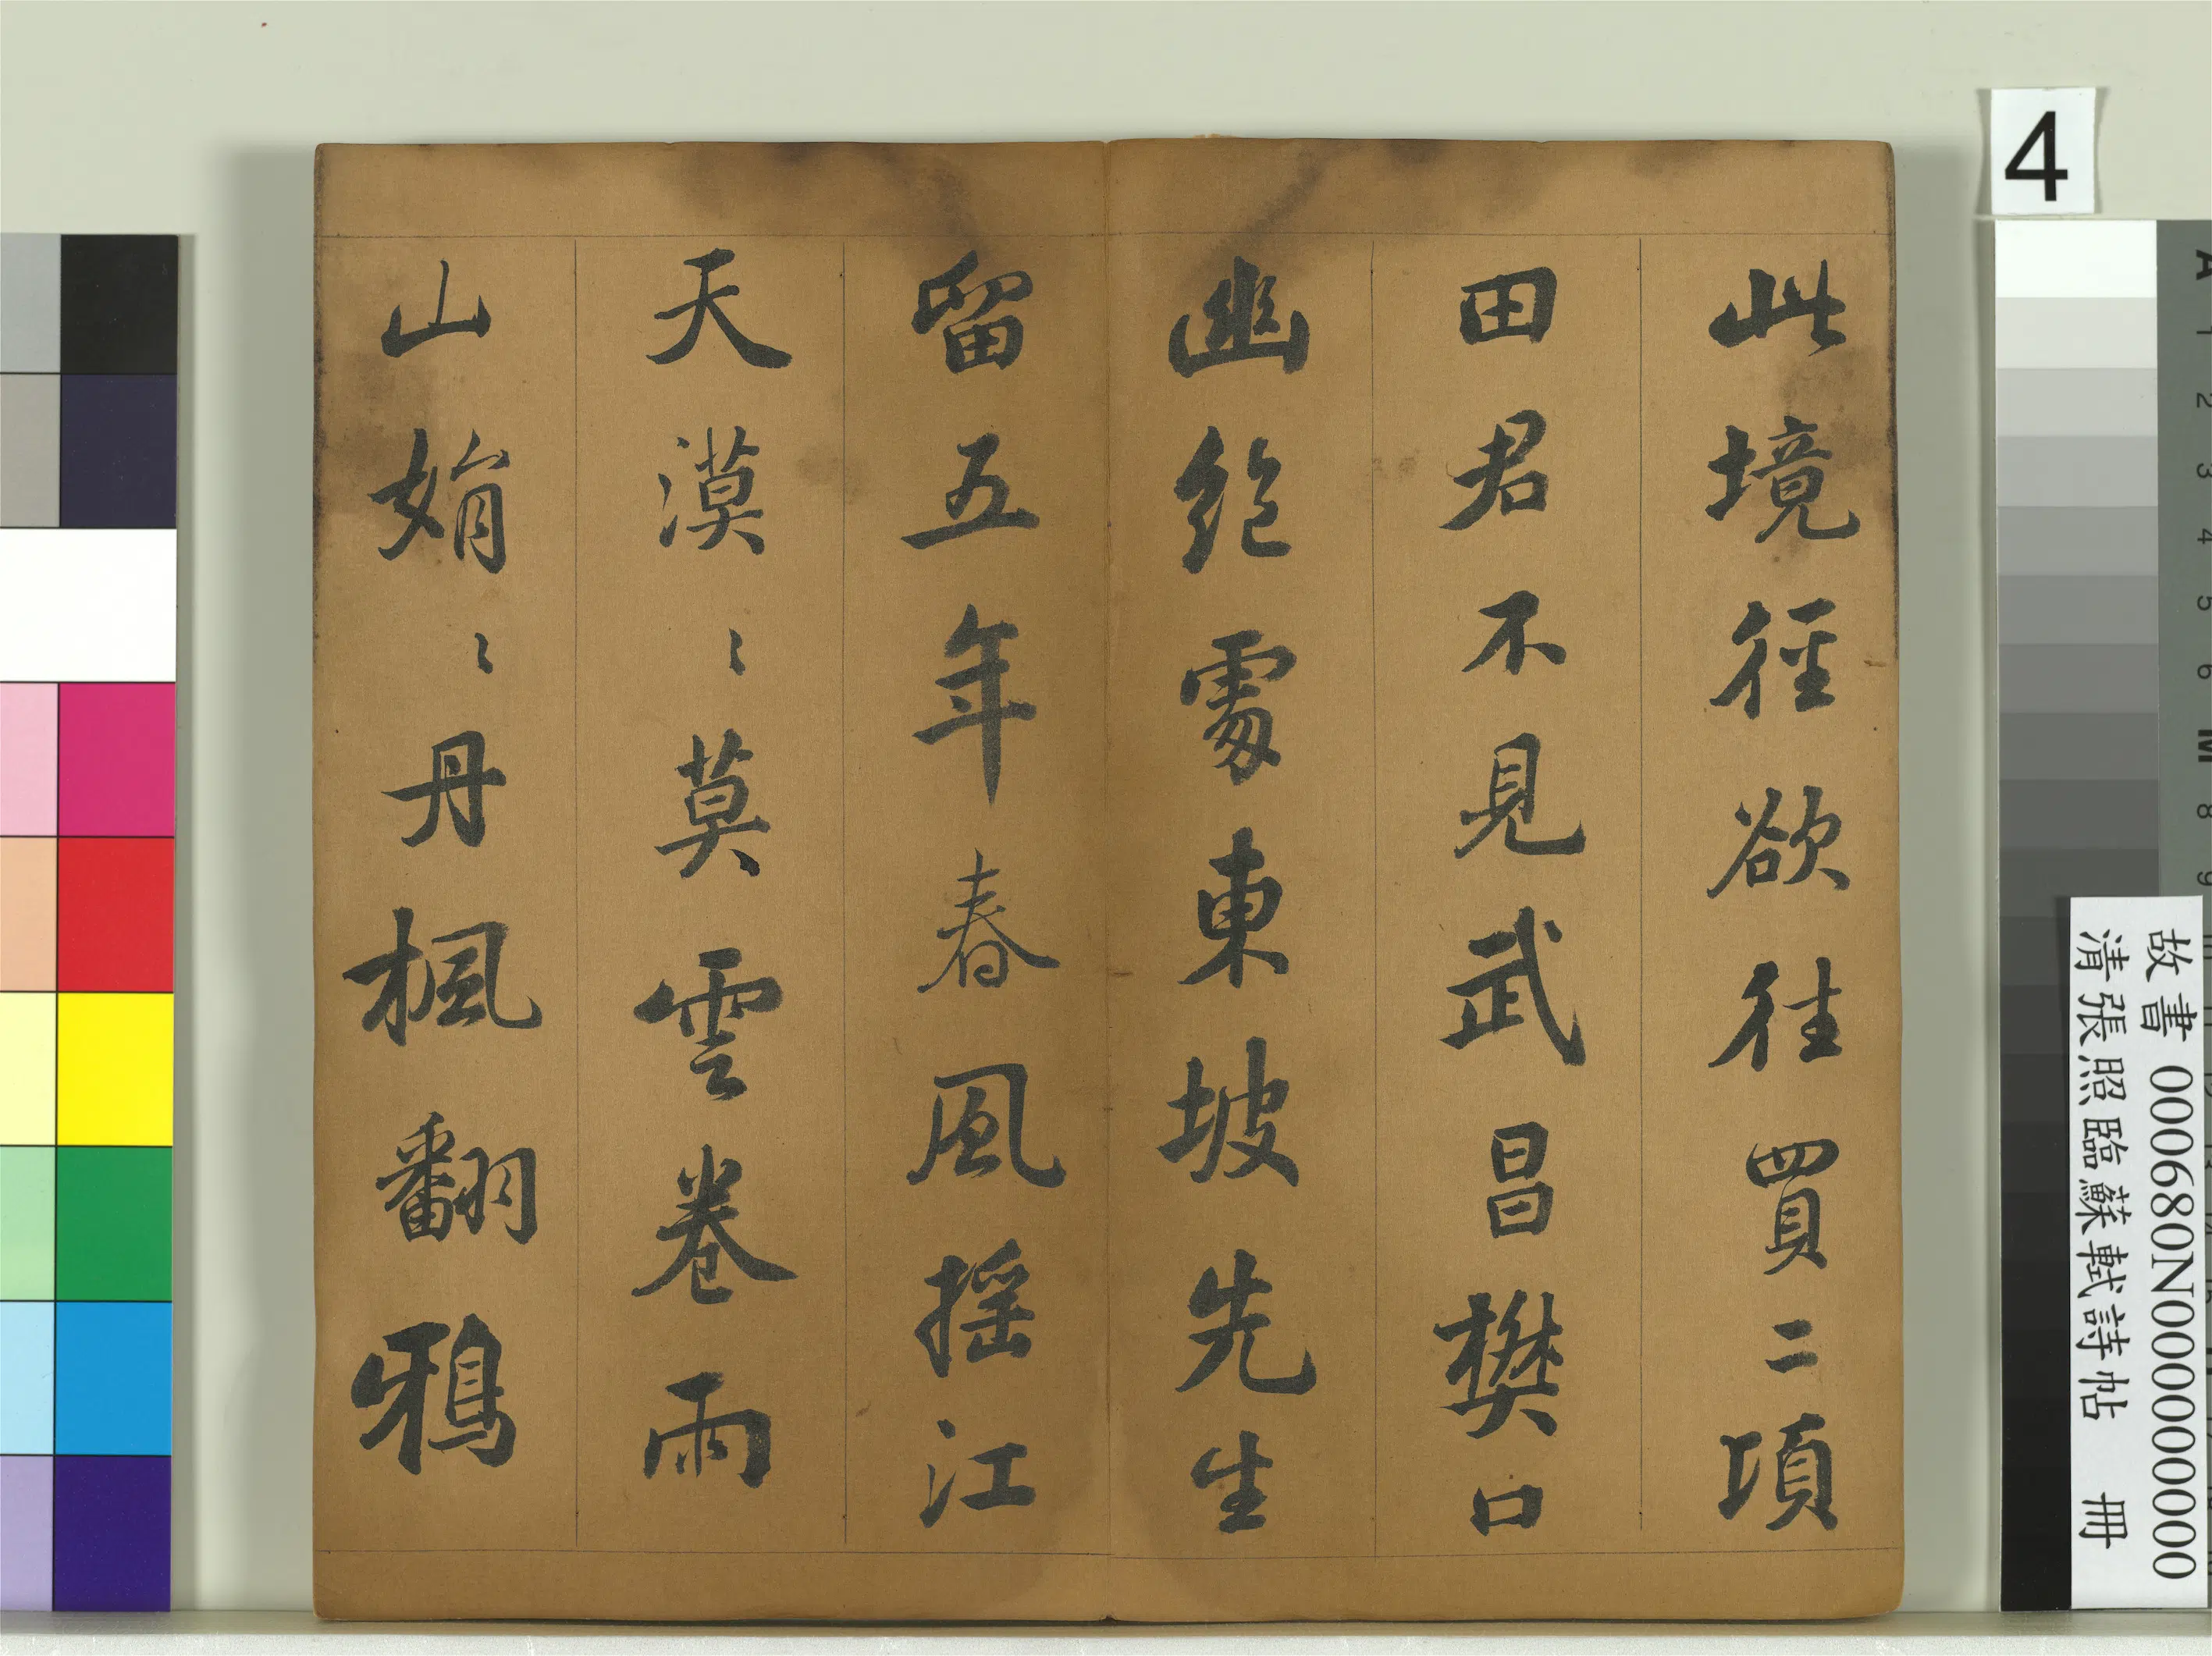 此境徑欲往買二項
田君不見武昌樊口
幽絕處東坡先生
留五年春風搖江
天漠〻莫雲卷雨
山娟〻丹楓翻鴉
4
故書 000680N000000000
清張照臨蘇軾詩帖 冊
A 1 2 3 4 5 6 M 8 9